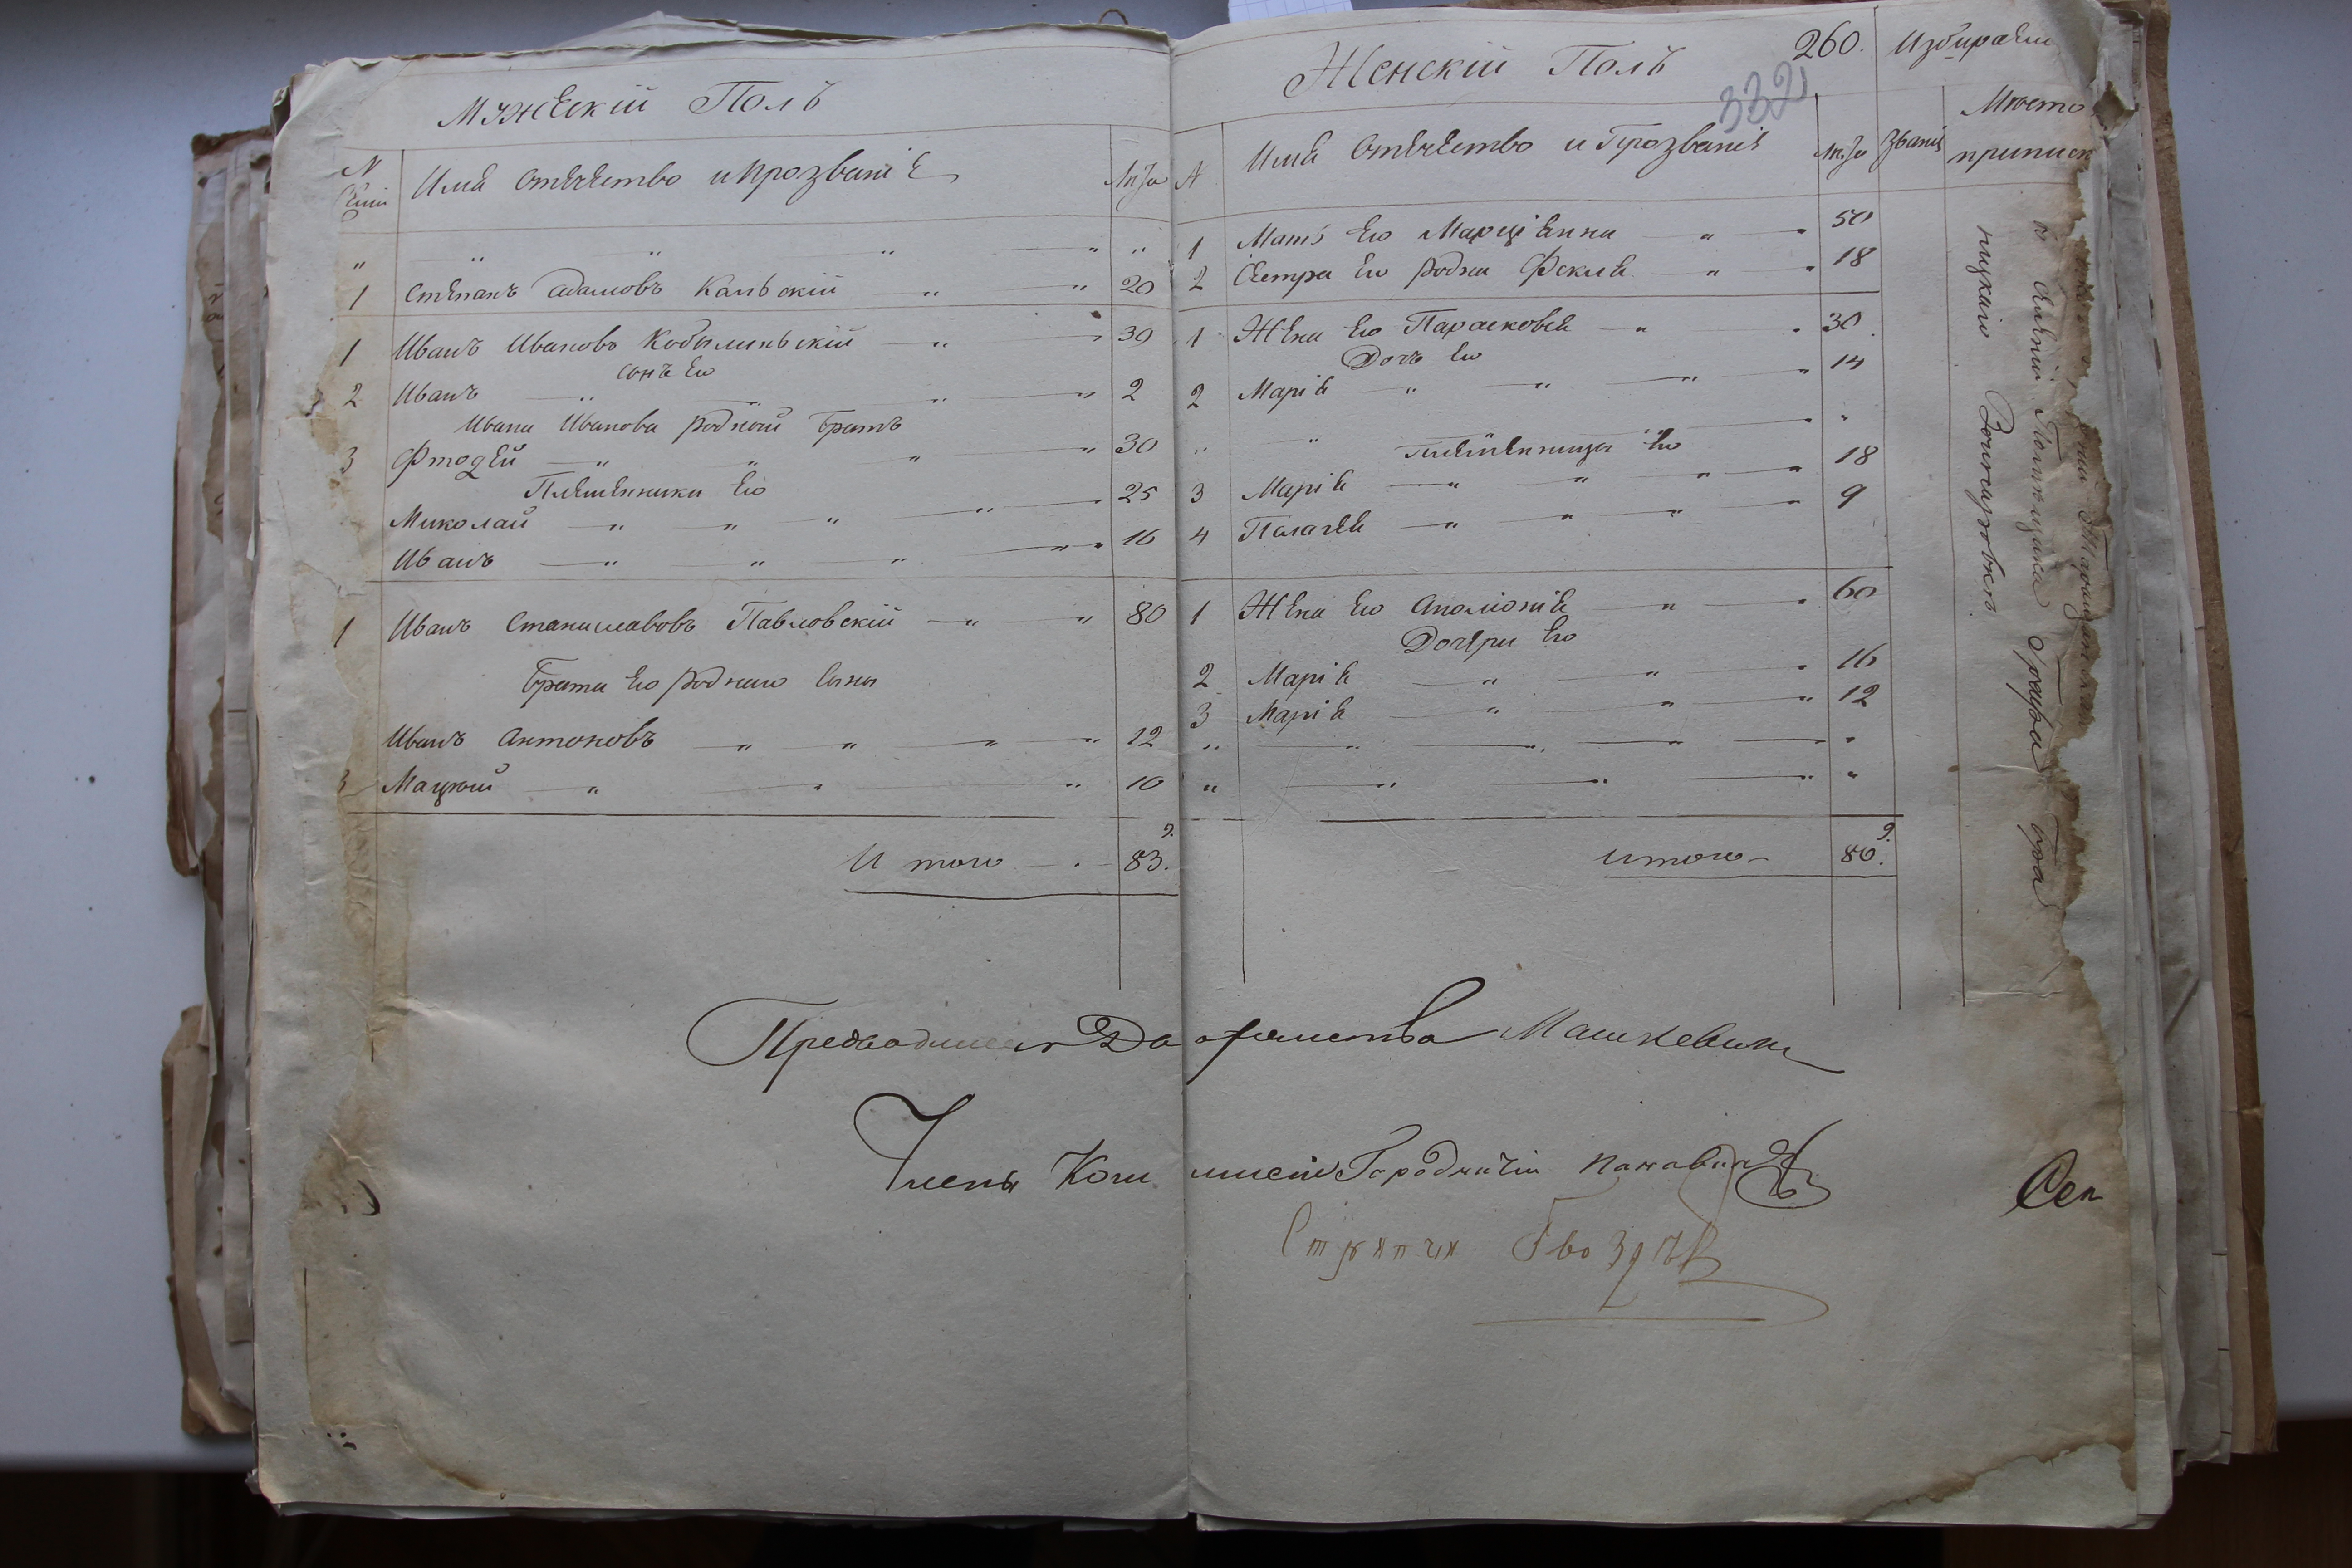 Мужескій Полъ
N Семіи Имя Отечество и прозваніе Лѣта
" " " " " "
1 Степанъ Адамовъ Кальскій " " 20
1 Иванъ Ивановъ Кобылиньскій " " 30
сынъ Его
2 Иванъ " " " " 2
Ивана Иванова родной братъ
3 Фтодей " " " " 30
Племенники Его
Миколай " " " " 25
Иванъ " " " " 16
1 Иванъ Станиславовъ Павловскій " " 80
Брата Его роднаго сыны
Иванъ Антоновъ " " " " 12
3 Мацѣй " " " 10
И того 83. 9.
Женскій Полъ
260. Избираем
332
N Имя Отечество и Прозваніе Лѣта Званія Место приписк
1 Мать Его Марціянна " " 50
2 Сестра Его родна Фекля " " 18
1 Жена Его Парасковея " " 30
Дочь Его
2 Марія " " " " 14
" " "
племѣнницы Его
3 Марія " " " " 18
4 Палагея " " " " 9
1 Жена Его Аполіонія " " 60
Дочери Его
2 Марія " " " 16
3 Марія " " " 12
" " " " " "
" " " " " "
итого 80. 9.
Предводитель Дворянства Машкевичъ
Члень Коммисіи Городничій
Стряпчій Гвозд
Сек